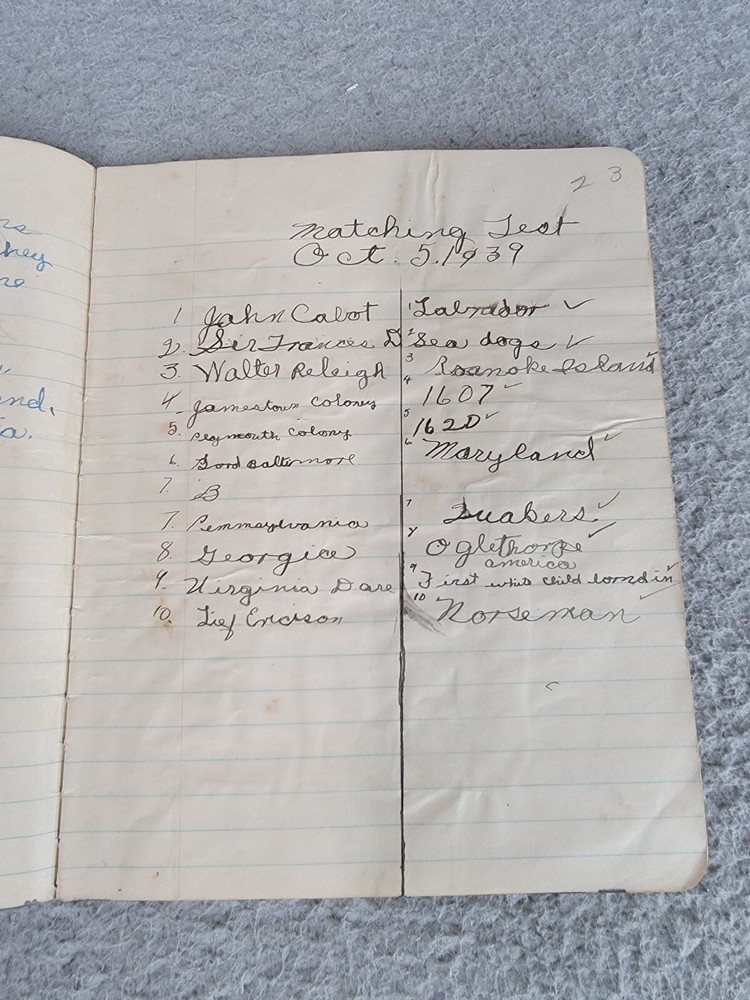 23
Matching Test
Oct. 5, 1939
1 John Cabot 1 Labrador ✓
2. Sir Frances D 2 Sea dogs ✓
3. Walter Releigh 3 Roanoke Island ✓
4 Jamestown Colony 4 1607 ✓
5. Plymouth Colony 5 1620 ✓
6. Lord Baltimore 6 Maryland ✓
7. B
7. Pennsylvania 7 Quakers ✓
8. Georgia 8 Oglethorpe ✓
america
9. Virginia Dare 9 First white child bornd in ✓
10. Lief Ericison 10 Norseman ✓
hey
end,
a.